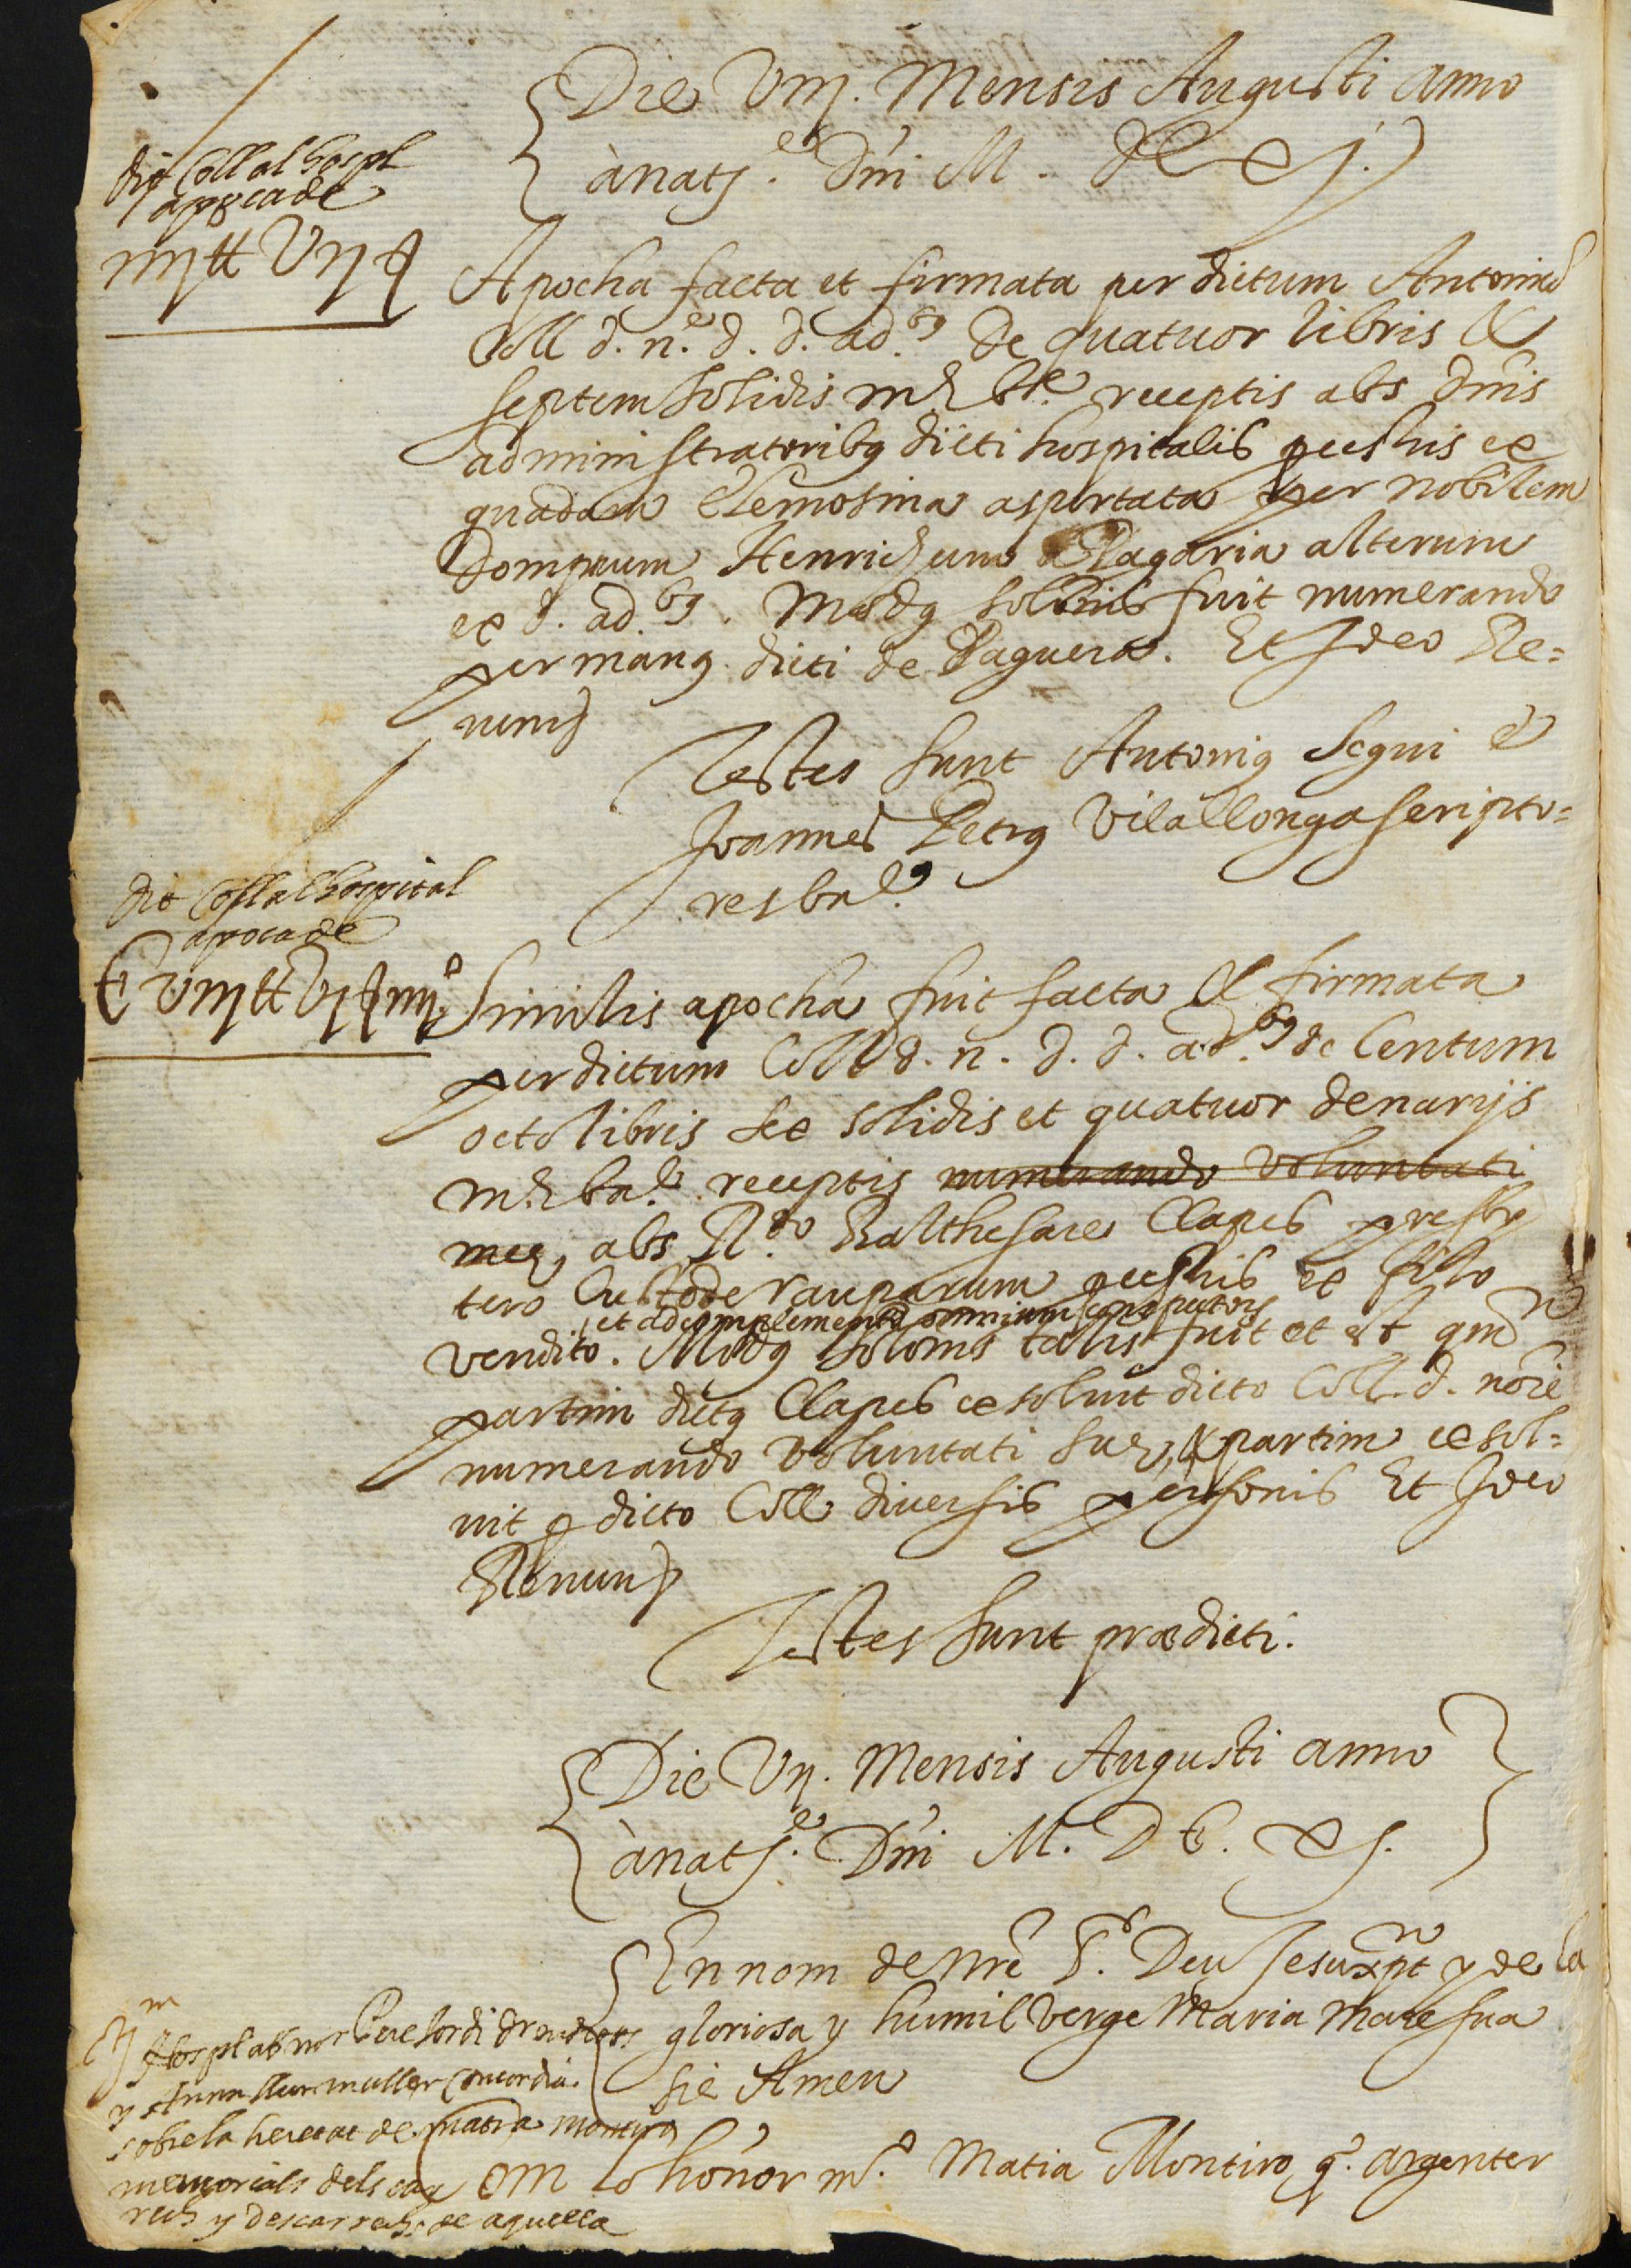 Die Vııȷ. Mensis Augusti Anno
ànatȷ.e Dni M. DC ȷ.
dit Coll al hospl
apocade
ıııȷ tt Vıȷ
Apocha facta et firmata per dictum Antoniũ
Coll d. n.e d. d. ad.bꝯ de quatuor libris &
septem solidis mꝫ bẽ receptis abs dnis
administratoribꝯ dicti hospitalis
quadam elemosina asportata per nobilem
Dompnum Henrichum alterum
ex d. ad.bꝯ. Modꝯ solonis fuit numerando
per manꝯ dicti de Paguera. Et Ideo Re=
nunȷ
Testes sunt Antoniꝯ Segui et
Joannes Petrꝯ Vilallonga scripto=
res bal.
dit Coll al hospital
apoca de
C Vııȷ tt Vȷ ıııȷ
Similis apocha fuit facta & firmata
per dictum Coll d. n. d. d. ad.bꝯ de Centum
octo libris sex solidis et quatuor denarijs
mꝫ bal. receptis numerando voluntati
meę, abs R.do Balthesare Clapes presby
tero Custode rauparum ex filo
et ad complementũ omnium computorȷ
vendito. Modꝯ solonis talis fuit et est qm̃
partim dictꝯ Clapes exsoluit dicto Coll. d. nõie
numerando voluntati suę, & partim exsol=
uit ꝑ dicto Coll diuersis personis Et Ideo
Renunȷ
Testes sunt prædicti.
Die Vıȷ. Mensis Augusti anno
ànatȷ.e Dni M. D C. ȷ.
En nom de nrẽ S.r Deu Jesuxpt y de la
gloriosa y humil verge Maria Mare sua
sie Amen
Hospl ab mr Pere Jordi
y Anna llur muller Concordia
sobre la heretat de Matia Montiro
memorials dels car
rechs y descarrechs de aquella
Com lo honor m.o Matia Montiro q.o argenter